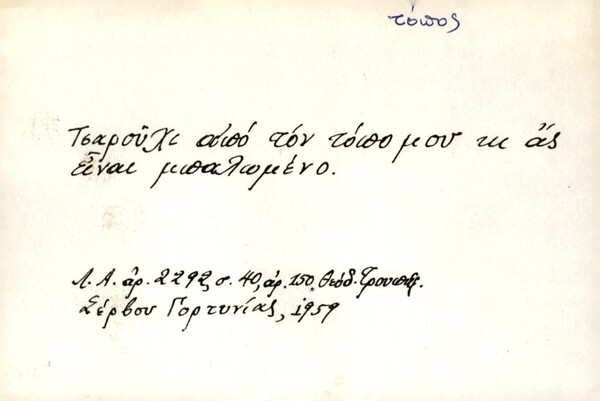 τόπος
Τσαροῦχι ἀπό τόν τόπο μου κι ἄς
εἶναι μπαλωμένο.
Λ. Α. ἀρ. 2292, σ. 40, ἀρ. 150, Θεόδ.
Σέρβου Γορτυνίας, 1959